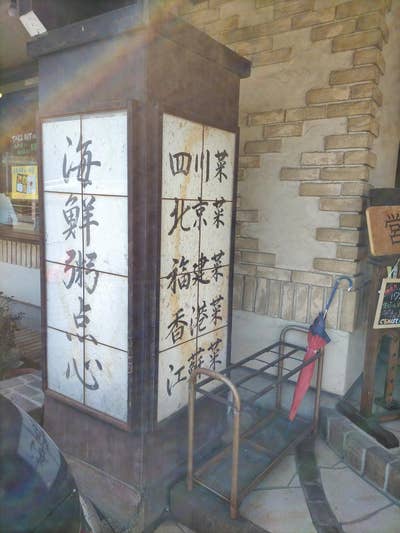 海鮮粥点心
四川菜
北京菜
福建菜
香港菜
江蘇菜
TAKE OUT
営